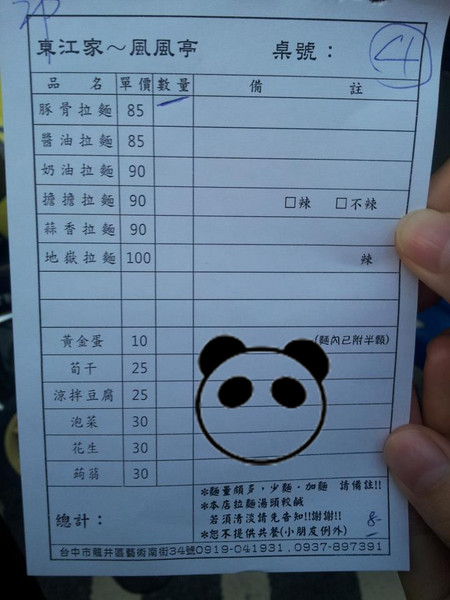 東江家～風風亭 桌號：4
品名 單價 數量 備註
豚骨拉麵 85
醬油拉麵 85
奶油拉麵 90
擔擔拉麵 90 □辣 □不辣
蒜香拉麵 90
地嶽拉麵 100 辣
黃金蛋 10 (麵內已附半顆)
荀干 25
涼拌豆腐 25
泡菜 30
花生 30
蒟蒻 30
*麵量頗多，少麵．加麵 請備註!!
*本店拉麵湯頭較鹹
若須清淡請先告知!!謝謝!!
*恕不提供共餐(小朋友例外)
總計：
台中市龍井區藝術南街34號0919-041931．0937-897391